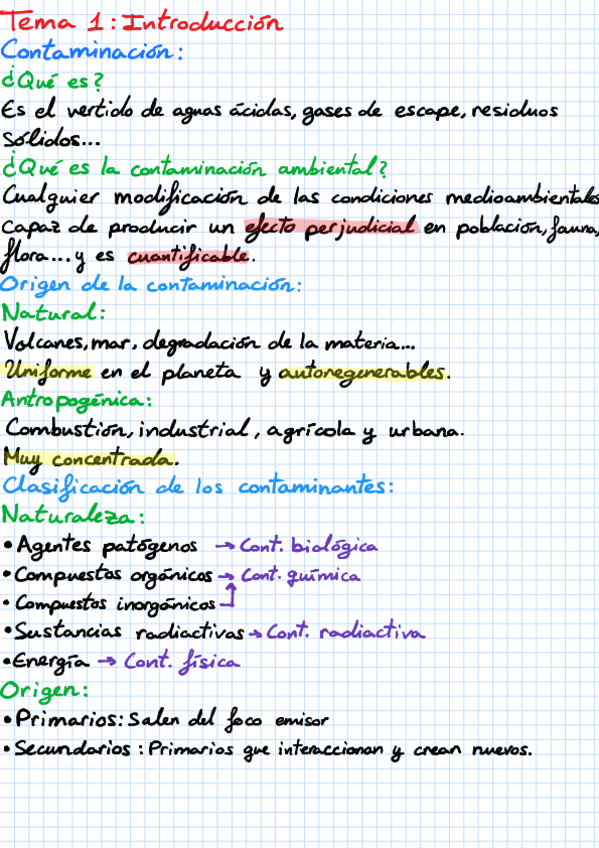 Tema 1: Introducción
Contaminación:
¿Qué es?
Es el vertido de aguas ácidas, gases de escape, residuos
sólidos...
¿Qué es la contaminación ambiental?
Cualquier modificación de las condiciones medioambientales
capaz de producir un efecto perjudicial en población, fauna,
flora... y es cuantificable.
Origen de la contaminación:
Natural:
Volcanes, mar, degradación de la materia...
Uniforme en el planeta y autoregenerables.
Antropogénica:
Combustión, industrial, agrícola y urbana.
Muy concentrada.
Clasificación de los contaminantes:
Naturaleza:
• Agentes patógenos → Cont. biológica
• Compuestos orgánicos → Cont. química
• Compuestos inorgánicos
• Sustancias radiactivas → Cont. radiactiva
• Energía → Cont. física
Origen:
• Primarios: Salen del foco emisor
• Secundarios: Primarios que interaccionan y crean nuevos.